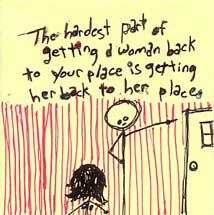 The hardest part of
getting a woman back
to your place is getting
her back to her place.